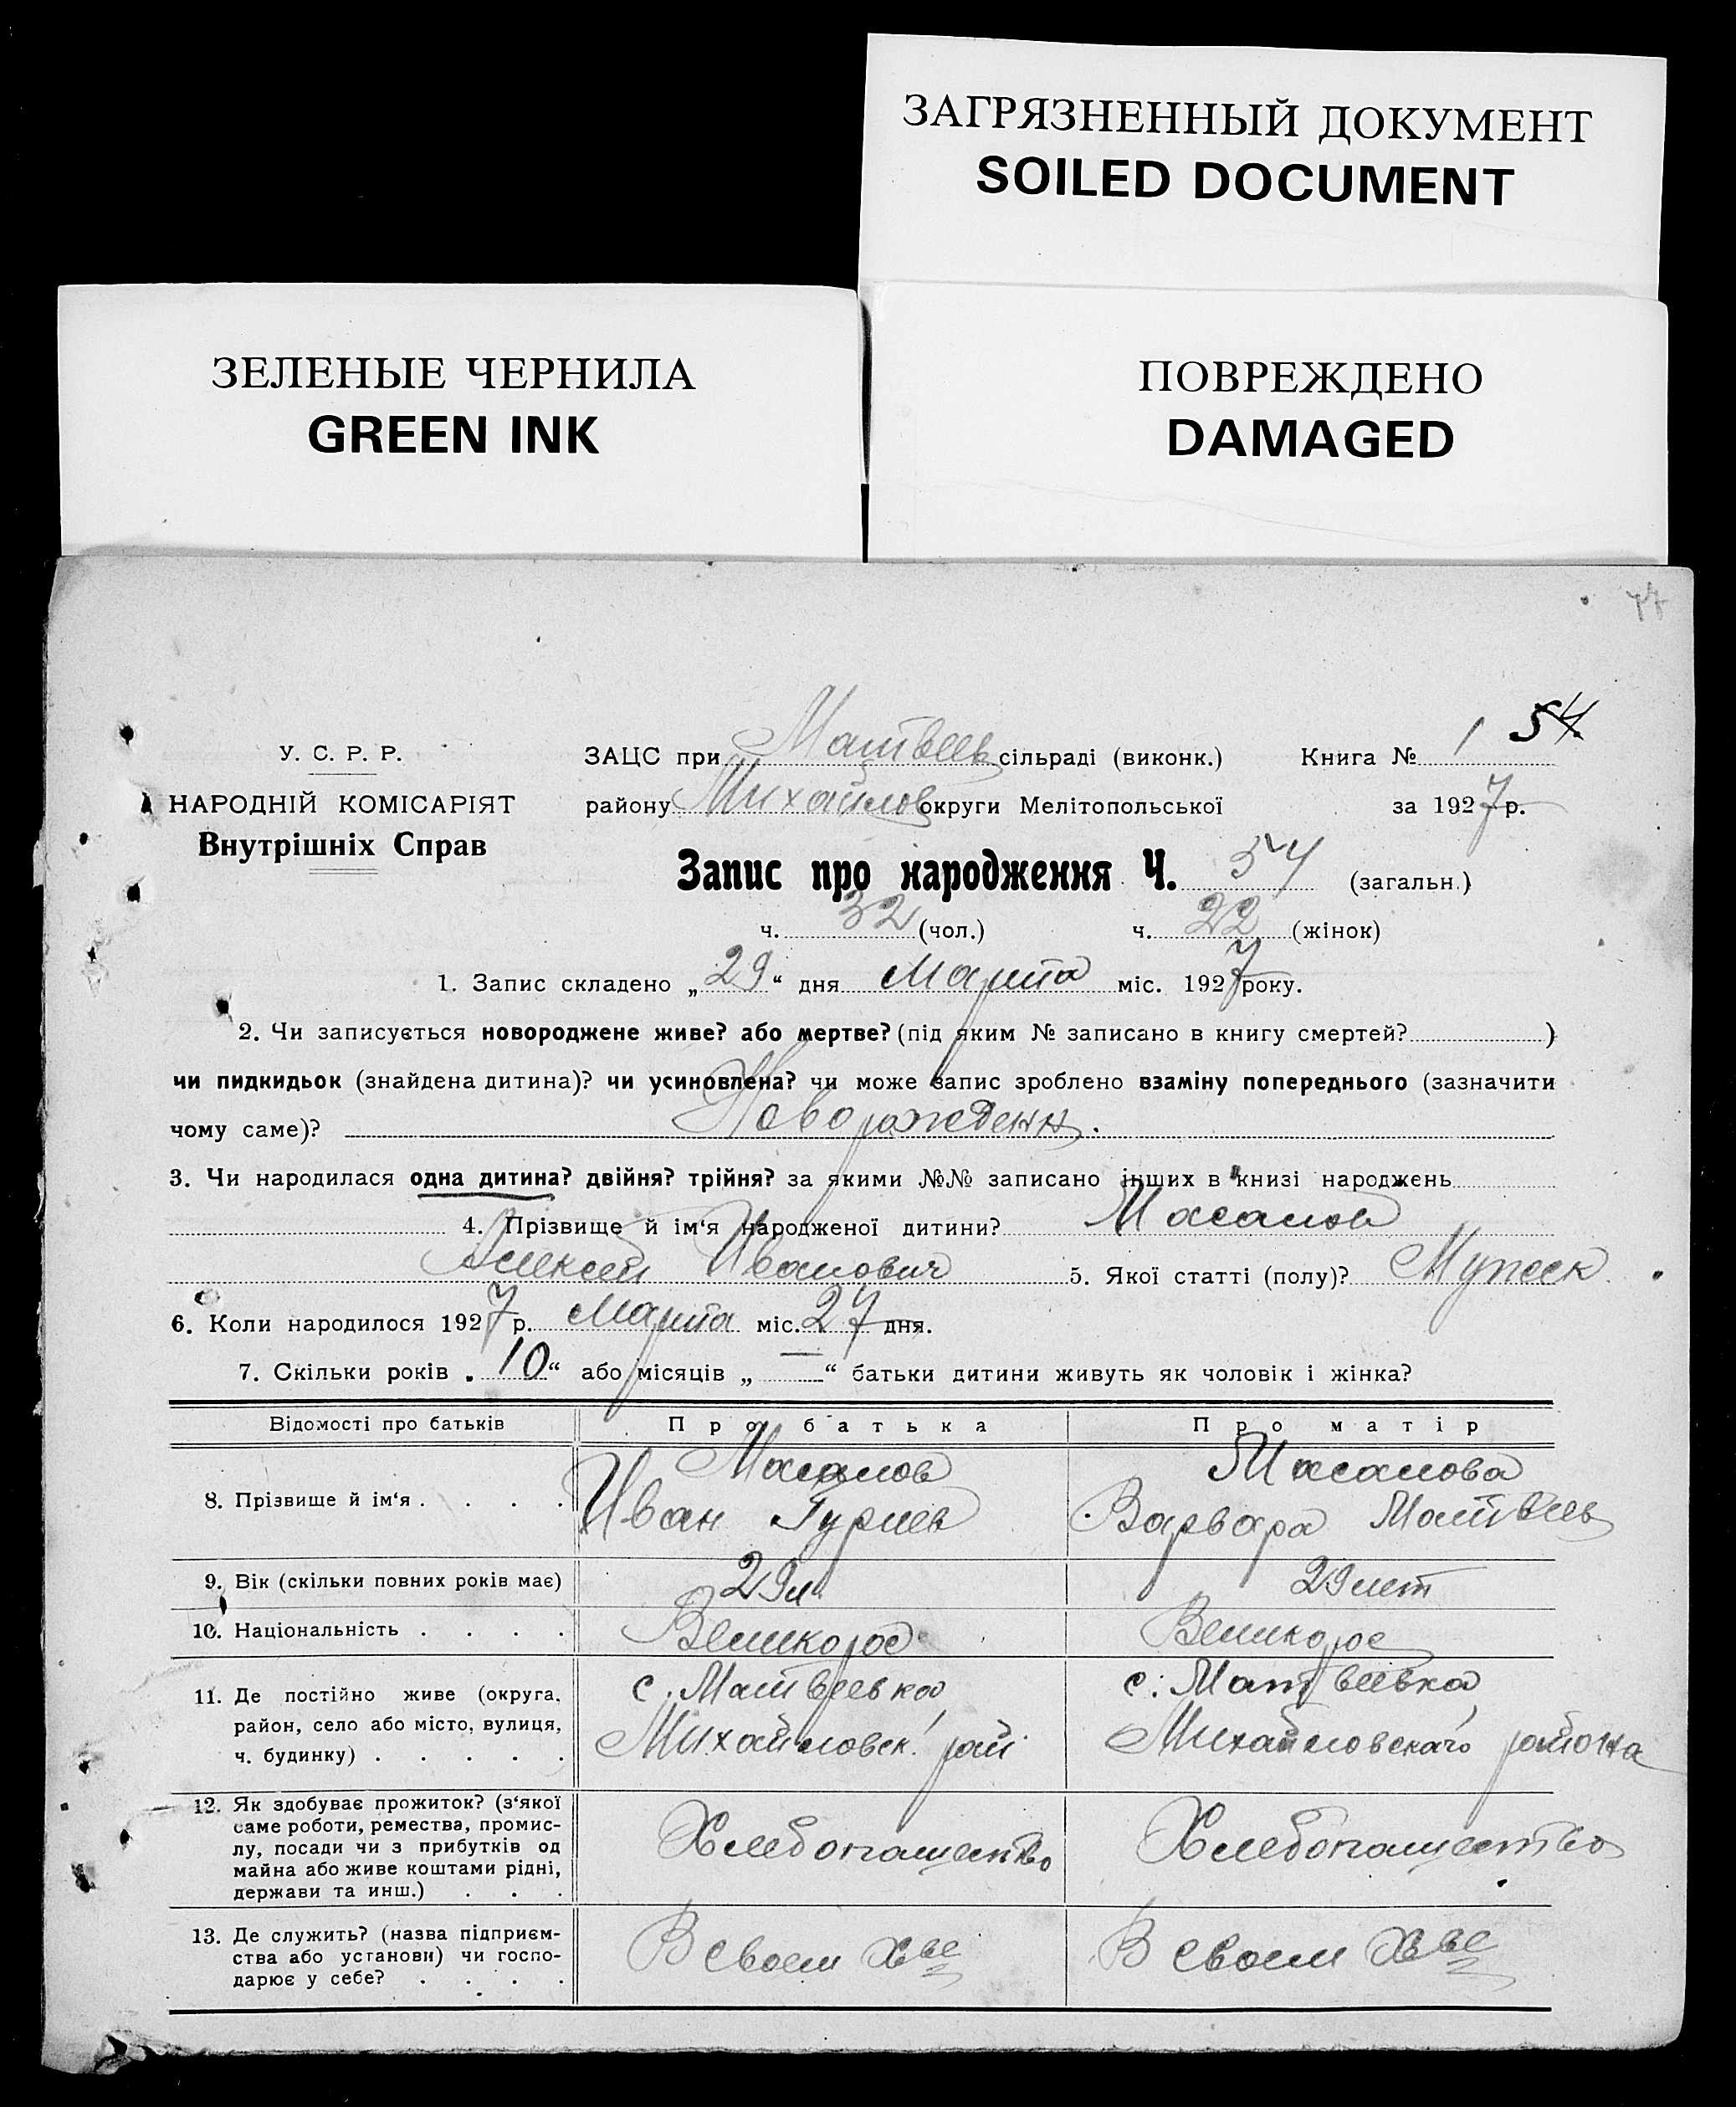 ЗАГРЯЗНЕННЫЙ ДОКУМЕНТ
SOILED DOCUMENT
ЗЕЛЕНЫЕ ЧЕРНИЛА
GREEN INK
ПОВРЕЖДЕНО
DAMAGED
77
У. С. Р. Р.
НАРОДНІЙ КОМІСАРІЯТ
Внутрішніх Справ
ЗАЦС при Матвеев сільраді (виконк.) Книга № 1 54
району Михайлов округи Мелітопольської за 1927 р.
Запис про народження Ч. 54 (загальн.)
ч. 32 (чол.) ч. 22 (жінок)
1. Запис складено „29“ дня Марта міс. 1927 року.
2. Чи записується новороджене живе? або мертве? (під яким № записано в книгу смертей? )
чи пидкидьок (знайдена дитина)? чи усиновлена? чи може запис зроблено взаміну попереднього (зазначити
чому саме)? Новорожденн.
3. Чи народилася одна дитина? двійня? трійня? за якими №№ записано інших в книзі народжень
4. Прізвище й ім‘я народженої дитини? Масалов
Алексей Иванович 5. Якої статті (полу)? Мужеск.
6. Коли народилося 1927 р. Марта міс. 27 дня.
7. Скільки років „10“ або місяців „—“ батьки дитини живуть як чоловік і жінка?
Відомості про батьків Про батька Про матір
8. Прізвище й ім‘я . . . . Масалов Масалова
Иван Гуриев Варвара Матвеев
9. Вік (скільки повних років має) 29 л. 29 лет
10. Національність . . . . Великорос Великорос
11. Де постійно живе (округа, район, село або місто, вулиця, ч. будинку) . . . . . с. Матвеевка с. Матвеевка
Михайловск. рай. Михайловскаго района
12. Як здобуває прожиток? (з‘якої саме роботи, ремества, промислу, посади чи з прибутків од майна або живе коштами рідні, держави та инш.) . . . Хлебопашество Хлебопашество
13. Де служить? (назва підприємства або установи) чи господарює у себе? . . . . В своем хве В своем хве